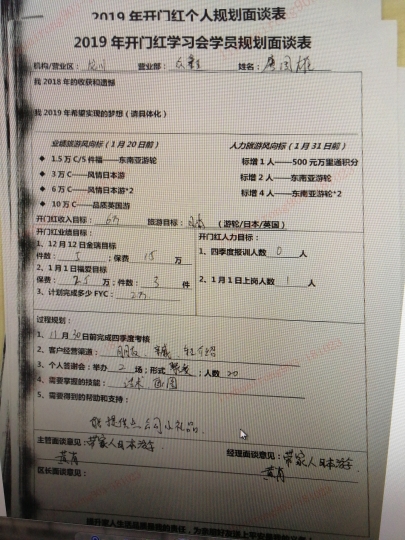 2019年开门红个人规划面谈表
2019年开门红学习会学员规划面谈表
机构/营业区： 营业部： 姓名：
我2018年的收获和遗憾
我2019年希望实现的梦想（请具体化）
业绩旅游风向标（1月20日前） 人力旅游风向标（1月31日前）
◆ 1.5万C/5件福——东南亚游轮 标增1人——500元万里通积分
◆ 3万C——风情日本游 标增2人——东南亚游轮
◆ 6万C——风情日本游*2 标增4人——东南亚游轮*2
◆ 10万C——品质英国游
开门红收入目标： 6万 旅游目标： 日本 （游轮/日本/英国）
开门红业绩目标： 开门红人力目标：
1、12月12日金瑞目标 1、四季度报训人数 0 人
件数： 5 ；保费 15 万
2、1月1日福爱目标 2、1月1日上岗人数 1 人
保费： 2.5 万；件数： 3 件
3、计划完成多少FYC： 2万
过程规划：
1、11月30日前完成四季度考核
2、客户经营渠道： 朋友、亲戚、转介绍
3、个人答谢会：举办 2 场；形式 聚餐 ；人数 20
4、需要掌握的技能： 话术
5、需要得到的帮助和支持：
能提供点公司小礼品
主管面谈意见： 带家人日本游学 经理面谈意见： 带家人日本游学
区长面谈意见：